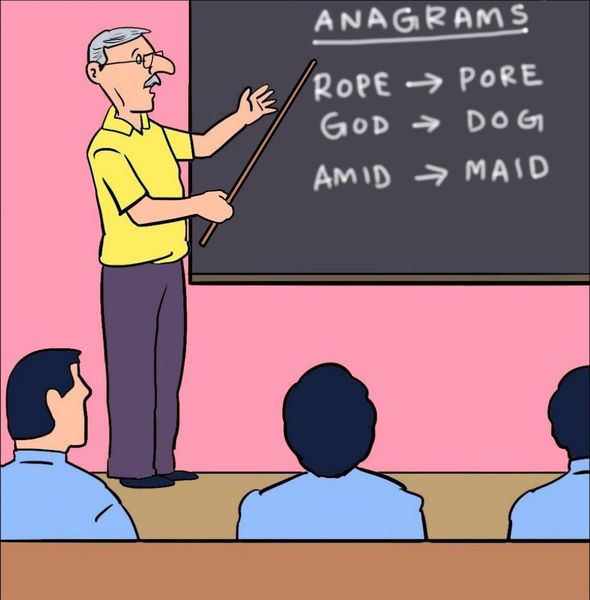 ANAGRAMS
ROPE → PORE
GOD → DOG
AMID → MAID